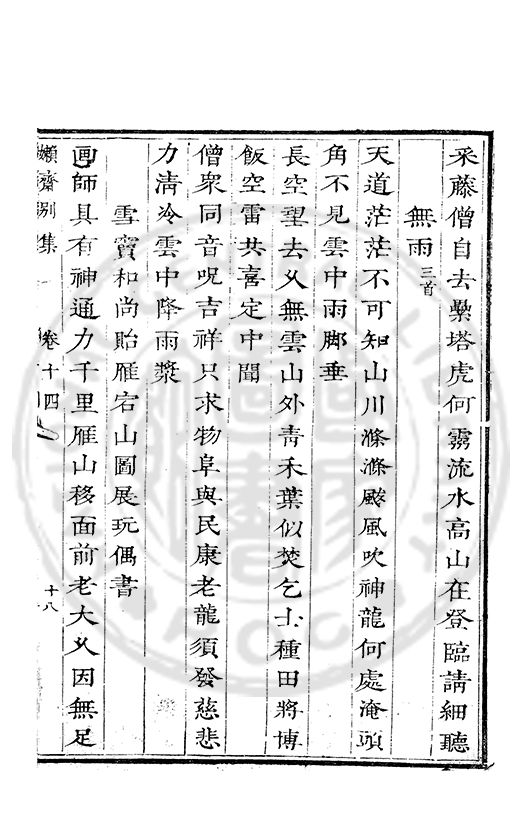 采藤僧自去塔虎何靈流水高山在登臨請細聽
無雨三首
天道茫茫不可知山川滌滌颷風吹神龍何處淹頭
角不見雲中雨脚垂
長空望去乆無雲山外靑禾葉似焚乞士種田將博
飯空雷共喜定中聞
僧衆同音呪吉祥只求物阜與民康老龍須發慈悲
力淸冷雲中降雨漿
雪寶和尚貽雁宕山圖展玩偶書
画師具有神通力千里雁山移面前老大乆因無足
嬾齋別集 卷十四 十八